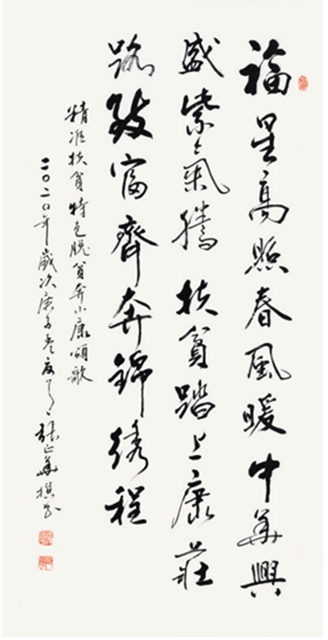 福星高照春風暖中華興
盛紫氣騰扶貧踏上康莊
路致富齊奔錦绣程
精准扶貧特色脱貧奔小康頌歌
二〇二〇年歲次庚子張正華撰書